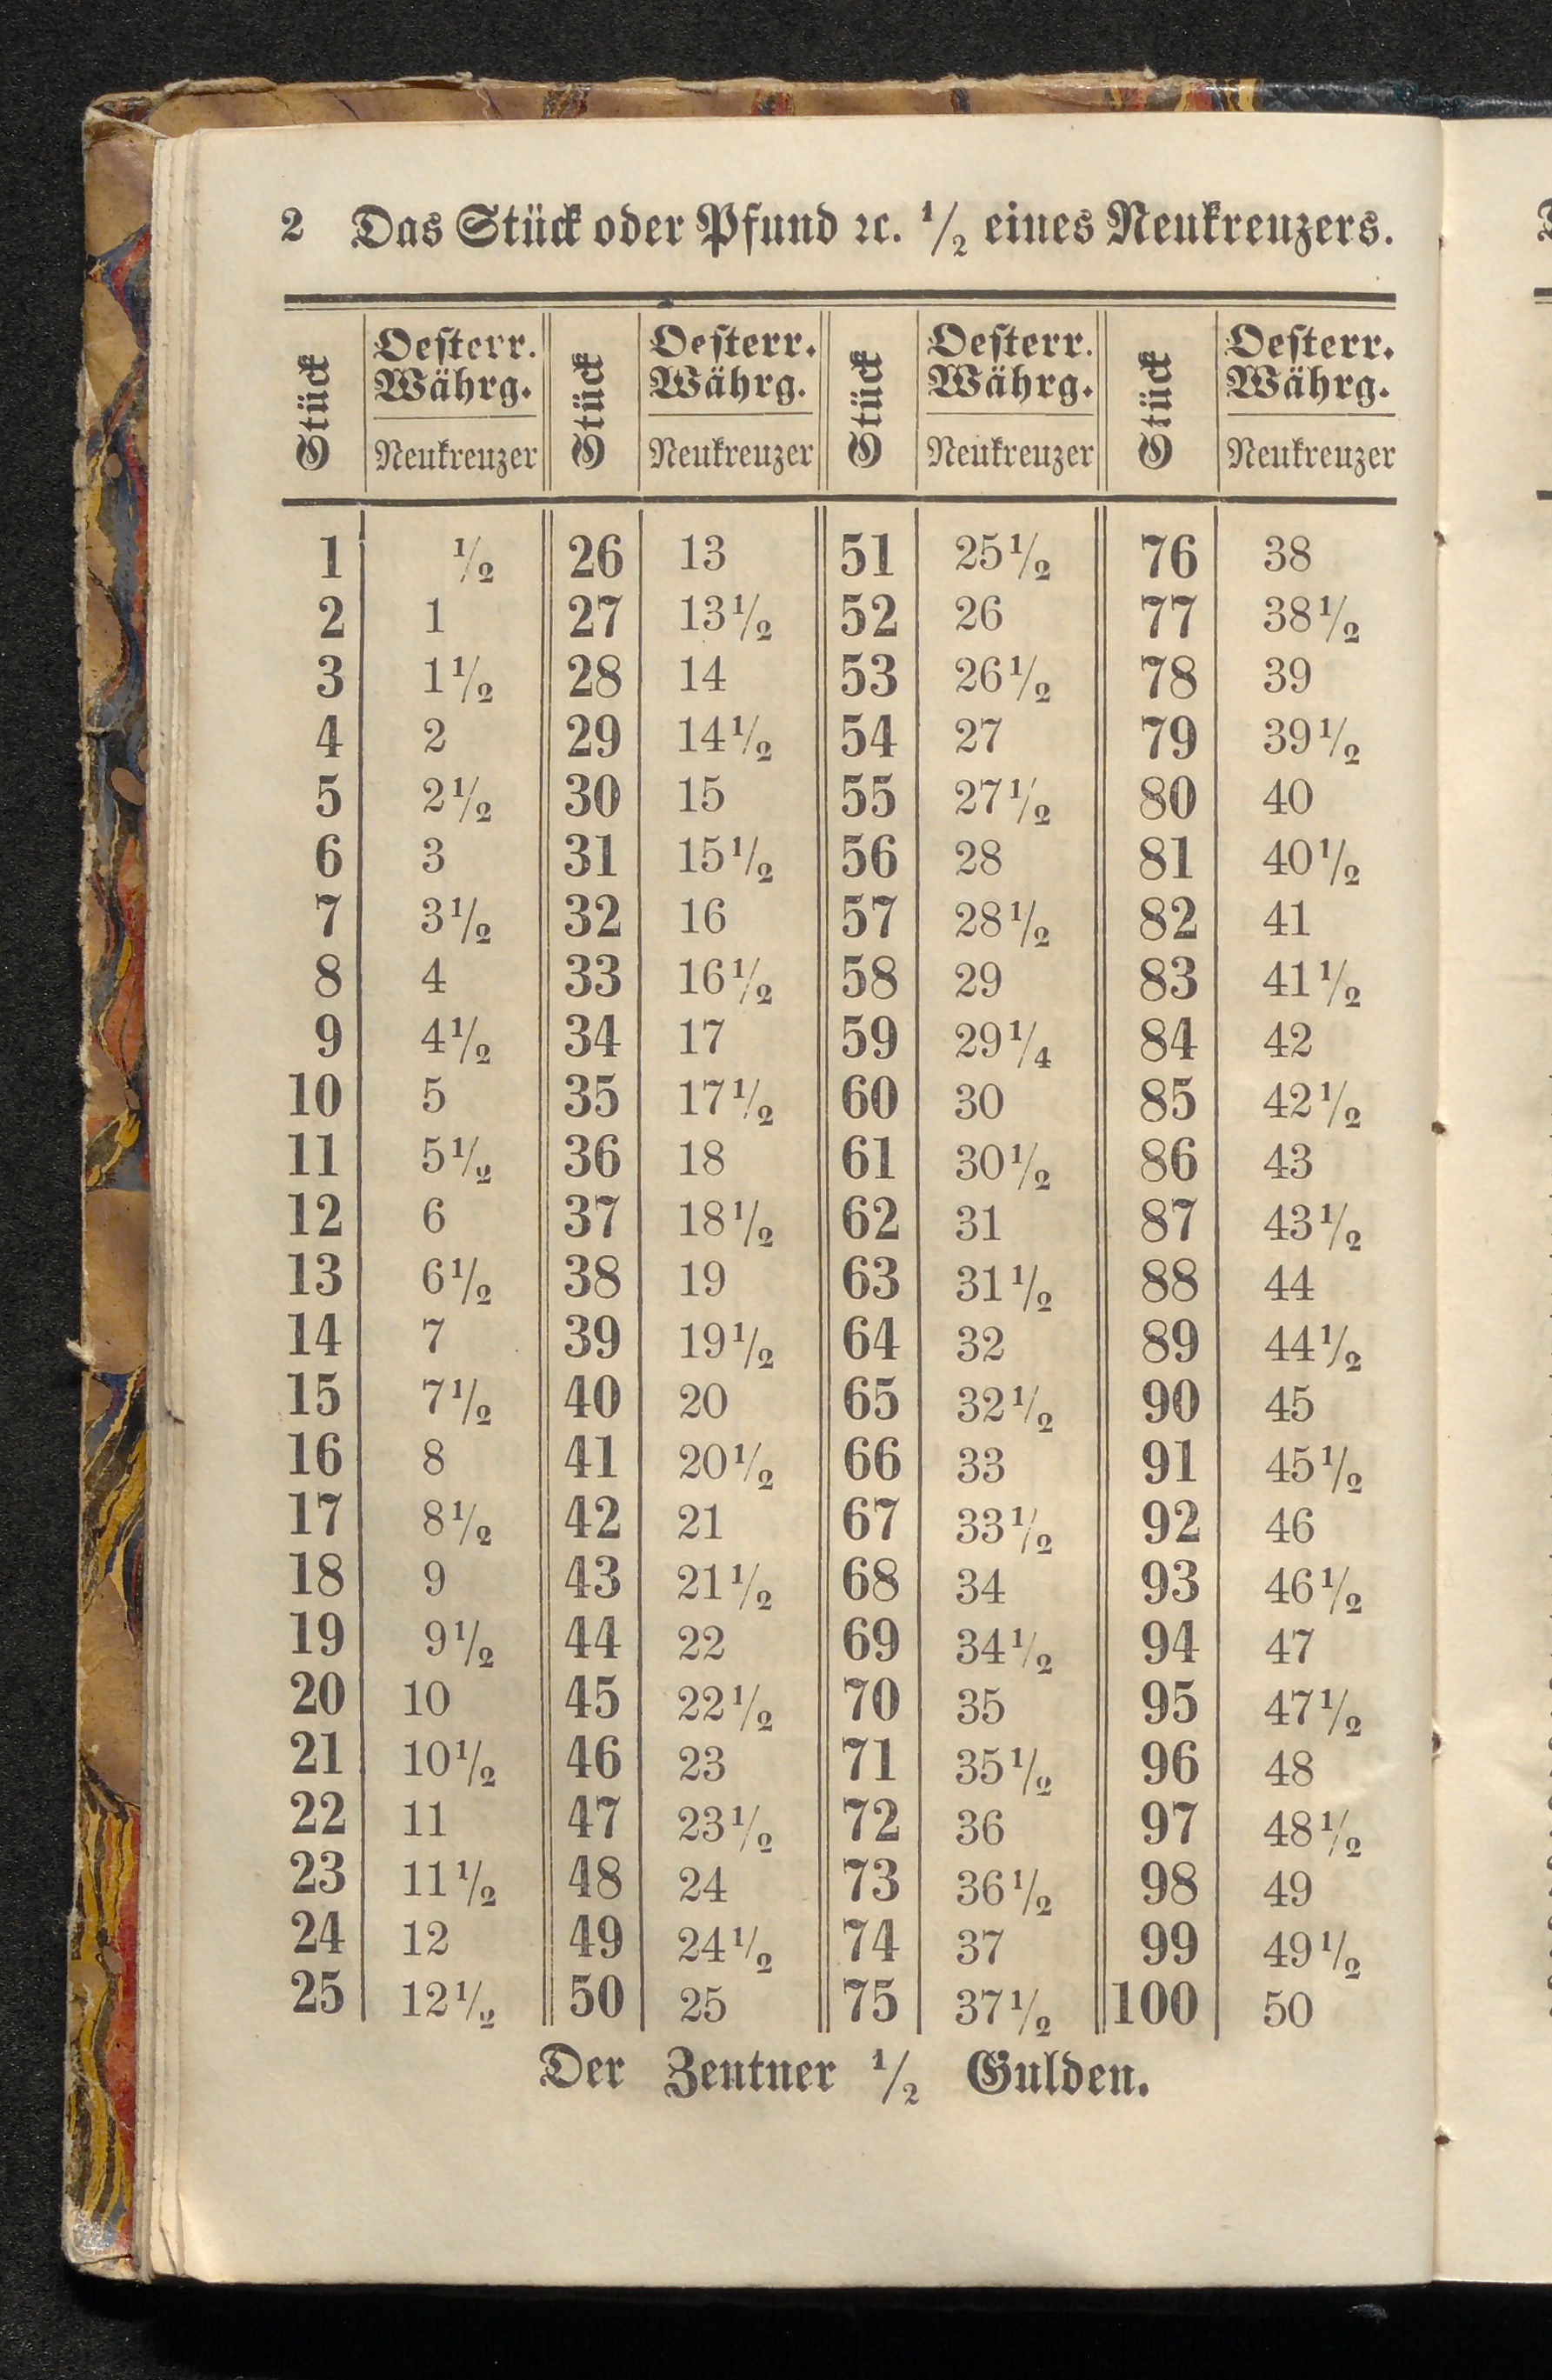 2 Das Stück oder Pfund ꝛc. 1/2 eines Neukreuzers.
Stück Oesterr. Währg. Neukreuzer Stück Oesterr. Währg. Neukreuzer Stück Oesterr. Währg. Neukreuzer Stück Oesterr. Währg. Neukreuzer
1 1/2 26 13 51 25 1/2 76 38
2 1 27 13 1/2 52 26 77 38 1/2
3 1 1/2 28 14 53 26 1/2 78 39
4 2 29 14 1/2 54 27 79 39 1/2
5 2 1/2 30 15 55 27 1/2 80 40
6 3 31 15 1/2 56 28 81 40 1/2
7 3 1/2 32 16 57 28 1/2 82 41
8 4 33 16 1/2 58 29 83 41 1/2
9 4 1/2 34 17 59 29 1/4 84 42
10 5 35 17 1/2 60 30 85 42 1/2
11 5 1/2 36 18 61 30 1/2 86 43
12 6 37 18 1/2 62 31 87 43 1/2
13 6 1/2 38 19 63 31 1/2 88 44
14 7 39 19 1/2 64 32 89 44 1/2
15 7 1/2 40 20 65 32 1/2 90 45
16 8 41 20 1/2 66 33 91 45 1/2
17 8 1/2 42 21 67 33 1/2 92 46
18 9 43 21 1/2 68 34 93 46 1/2
19 9 1/2 44 22 69 34 1/2 94 47
20 10 45 22 1/2 70 35 95 47 1/2
21 10 1/2 46 23 71 35 1/2 96 48
22 11 47 23 1/2 72 36 97 48 1/2
23 11 1/2 48 24 73 36 1/2 98 49
24 12 49 24 1/2 74 37 99 49 1/2
25 12 1/2 50 25 75 37 1/2 100 50
Der Zentner 1/2 Gulden.